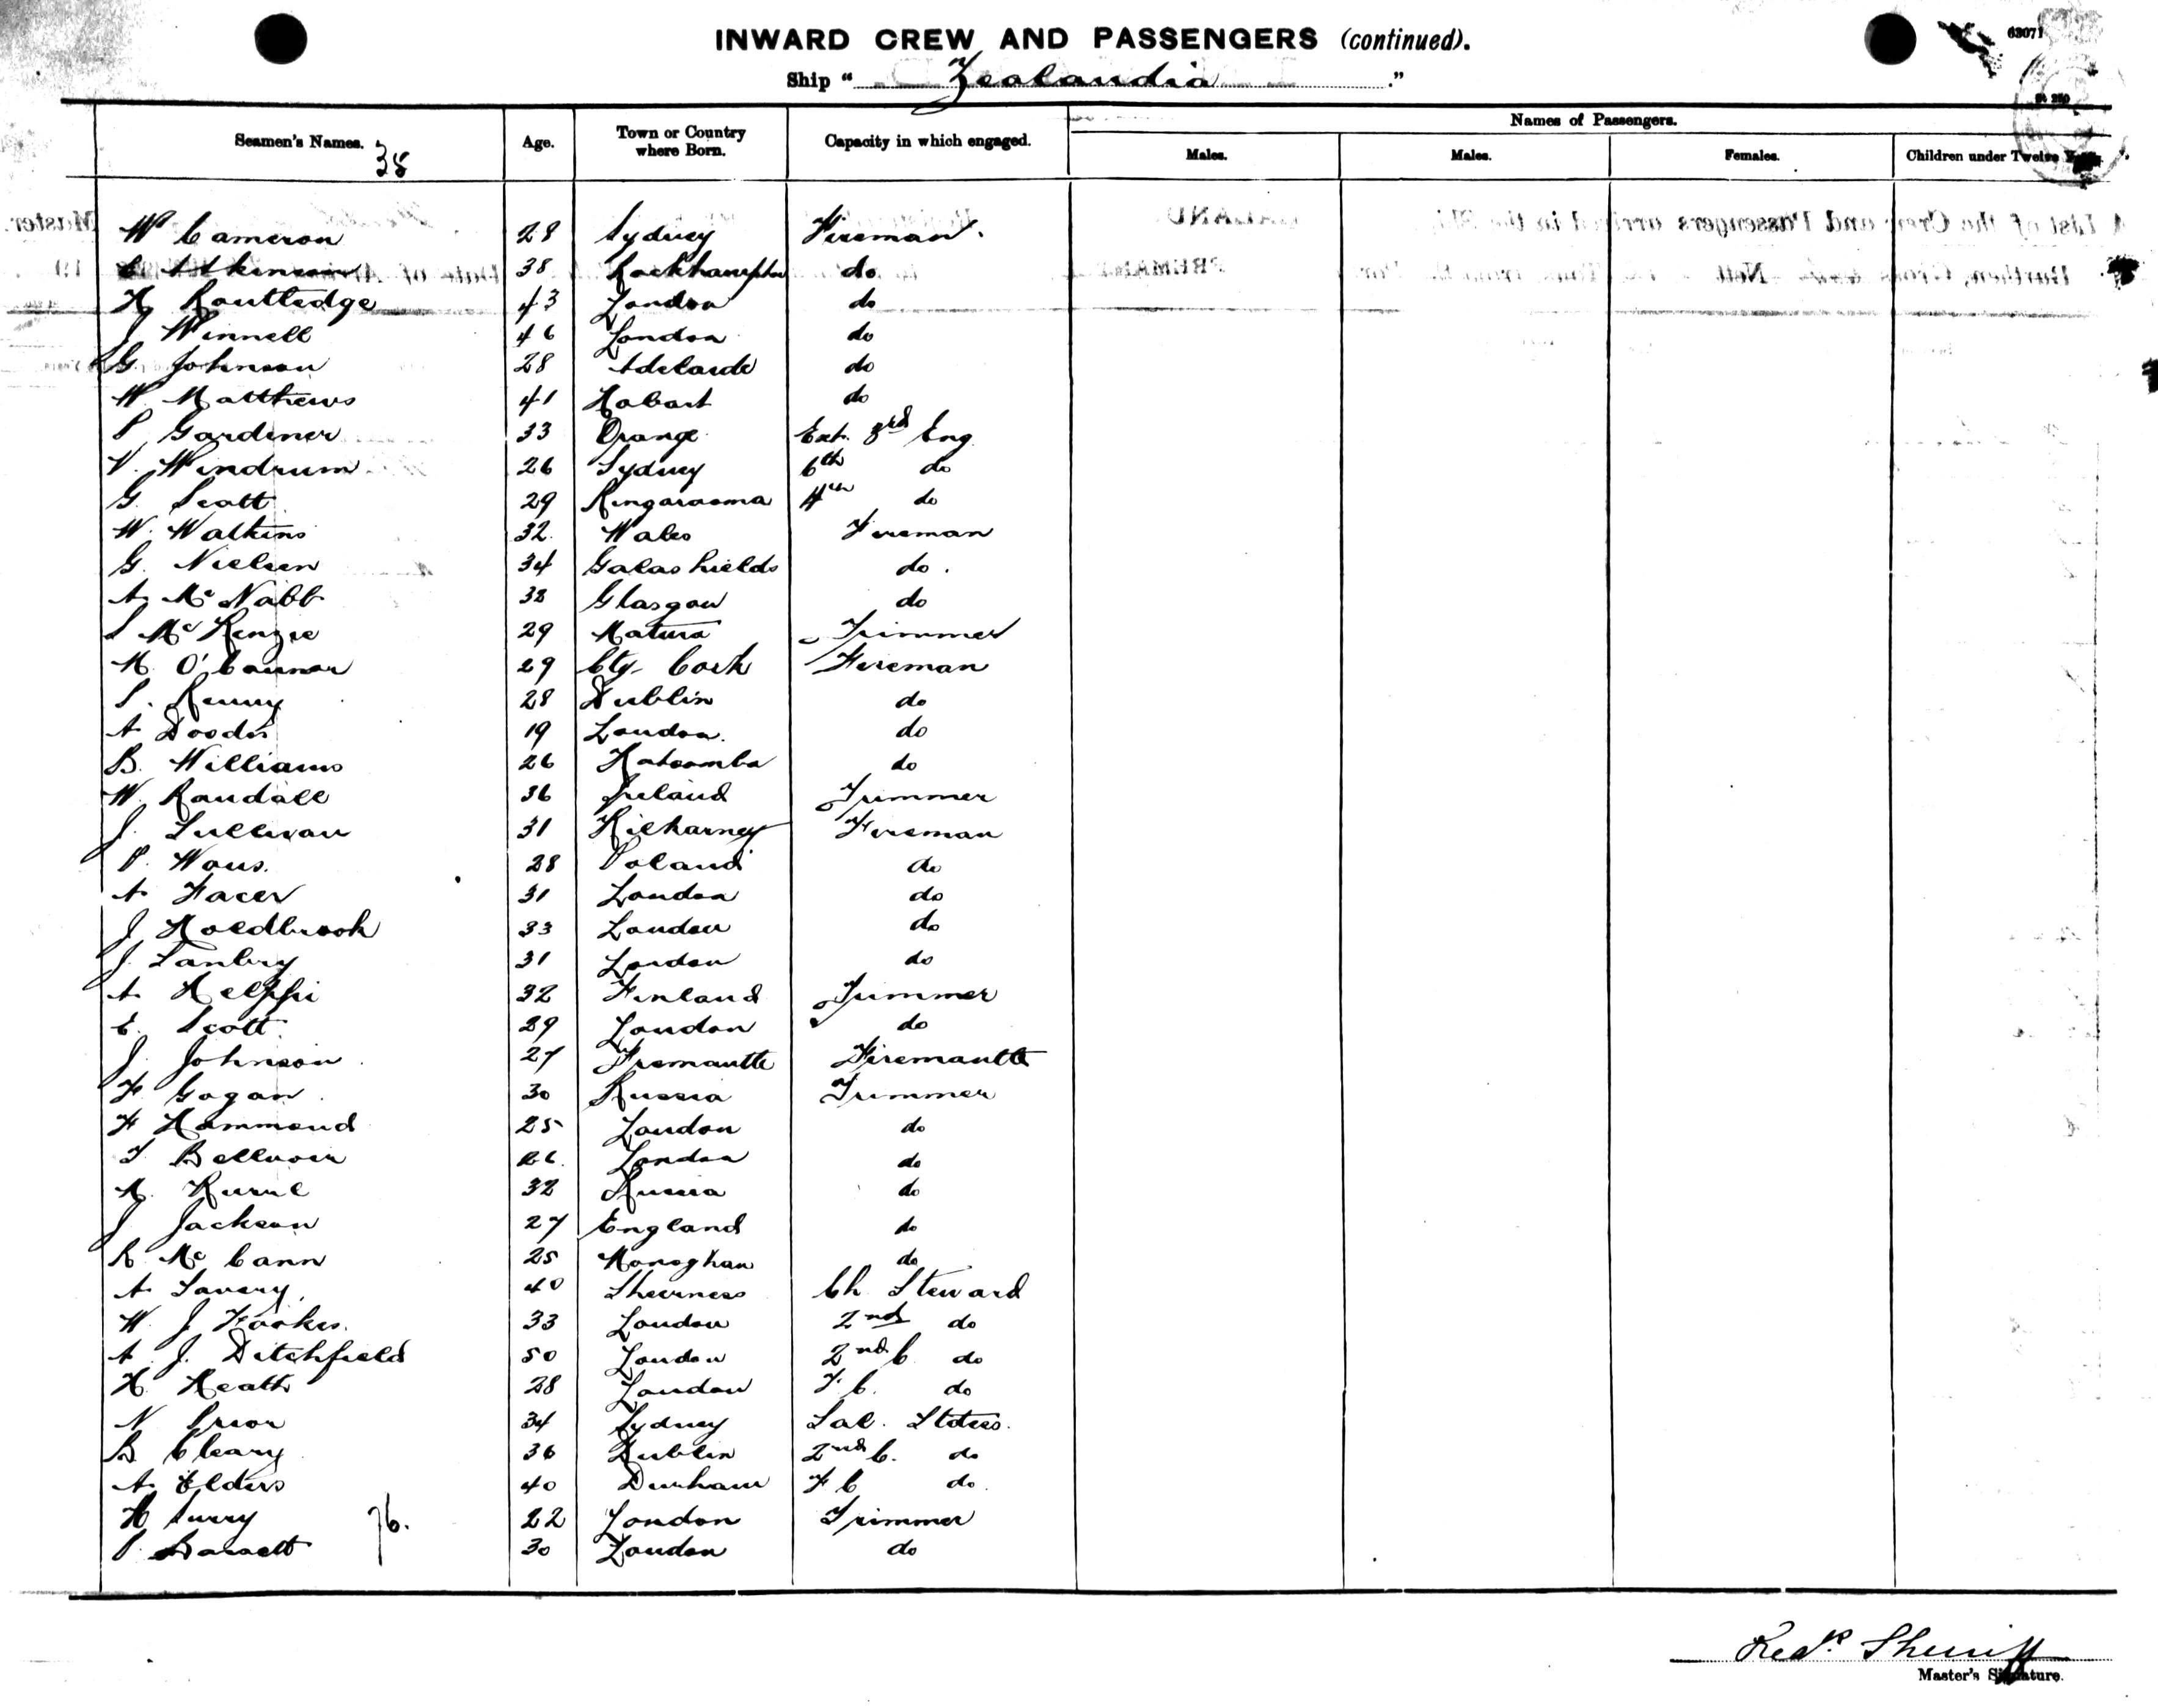 INWARD CREW AND PASSENGERS (continued).
63071
Ship " Zealandia "
Names of Passengers.
Seamen's Names. Age. Town or Country where Born. Capacity in which engaged. Males. Males. Females. Children under Twelve
38
W Cameron 28 Sydney Fireman.
Atkinson 38 Rockhampton do
H Routledge 43 London do
J Winnell 46 London do
G Johnson 28 Adelaide do
W Matthews 41 Hobart do
P Gardiner 33 Orange Ext. 3rd Eng
V. Windrum 26 Sydney 6th do
G. Scott 29 Ringarooma 4th do
W. Watkins 32 Wales Fireman
G. Nielsen 34 Galashields do.
A McNabb 38 Glasgow do
S McKenzie 29 Matura Trimmer
M O'Connor 29 Cty Cork Fireman
S. Kenny 28 Dublin do
A Doods 19 London. do
B. Williams 26 Katoomba do
W Randall 36 Ireland Trimmer
J. Sullivan 31 Killarney Fireman
P. Waus. 28 Poland do
A Facer 31 London do
J Holdbrook 33 London do
J. Tanbry 31 London do
A. Helppi 32 Finland Trimmer
E. Scott 29 London do
J. Johnson 27 Fremantle Firemantle
F Gogan 30 Russia Trimmer
F Hammond 25 London do
T London do
32 Russia do
J Jackson 27 England do
R McCann 25 Monoghan do
A Savery. 40 Sheerness Ch Steward
W J Fookes. 33 London 2nd do
A. J. Ditchfield 50 London 2nd C do
H. Heath 28 London F C. do
N Prior 34 Sydney Sal. Stdess.
B Cleary 36 Dublin 2nd C. do
A. Elders 40 Durham F C do.
H Surry 22 London Trimmer
76.
P Barnett 30 London do
Fredk Sherriff
Master's Signature.